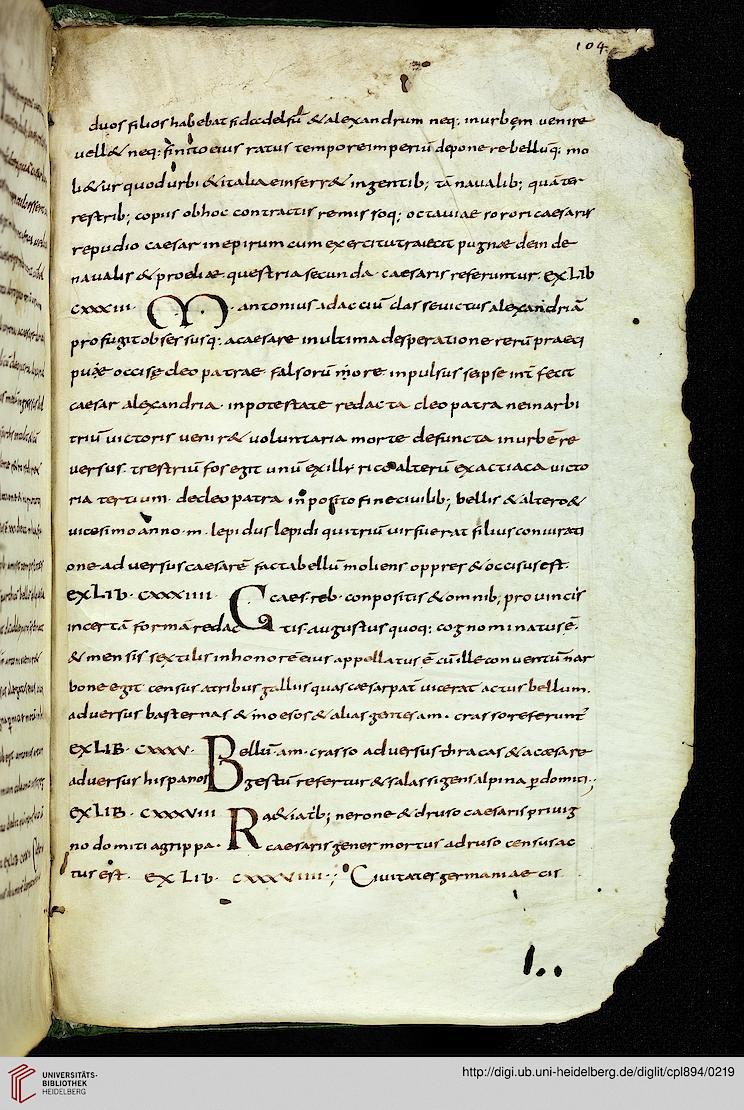 104
duos filios habebat fidcdelfū & alexandrum neq: inurbem uenire
uell& neq: finitoeius ratus temporeimperiū deponere bellūq; mo
li&ur quod urbi & italiae inferr& ingentib; tā naualib; quāter
restrib; copiis obhoc contractis remissoq; octauiae sorori caesaris
repudio caesar inepirum cum exercitu traiecit pugnae deinde
naualis & proeliae questria secunda caesaris referuntur. exLIb
cxxxiii M. antonius adacciū classeuictus alexandriā
profugit obsessusq: acaesare inultima desperatione rerū praeci
puae occisę cleopatrae falsorū more inpulsus seipse int fecit
caesar alexandria inpotestate redacta cleopatra neinarbi
triū uictoris uenir& uoluntaria morte defuncta inurbēre
uersus tres triūfos egit unū exillirico alterū exactiaca uicto
ria tertium decleopatra inposito fine ciuilib; bellis & altero&
uicesimo anno m. lepidus lepidi qui triūuir fuerat filius coniurati
one aduersus caesarē facta bellū moliens oppres & occisus est.
exLIb. cxxxiiii C caes. reb. conpositis & omnib; prouinciis
incertā formā redac tis augustus quoq: cognominatus ē.
& mensis sextilis inhonorē eius appellatus ē cū ille conuentū nar
bone egit census atribus gallus quas caesar pat uicerat actus bellum.
aduersus basternas & moesos & alias gentes am. crasso referunt
exLIB. cxxxv. Bellū. am. crasso aduersus thracas & acaesare
aduersus hispanos gestū refertur & salassi gens alpina pdomiti.;
exLIB. cxxxviii R a&iatib; nerone & druso caesaris priuig
no domiti agrippa. caesaris gener mortus adruso census ac
tus est. exLIb. cxxxviiii.; Ciuitates germaniae cis
UNIVERSITÄTS-
BIBLIOTHEK
HEIDELBERG
http://digi.ub.uni-heidelberg.de/diglit/cpl894/0219